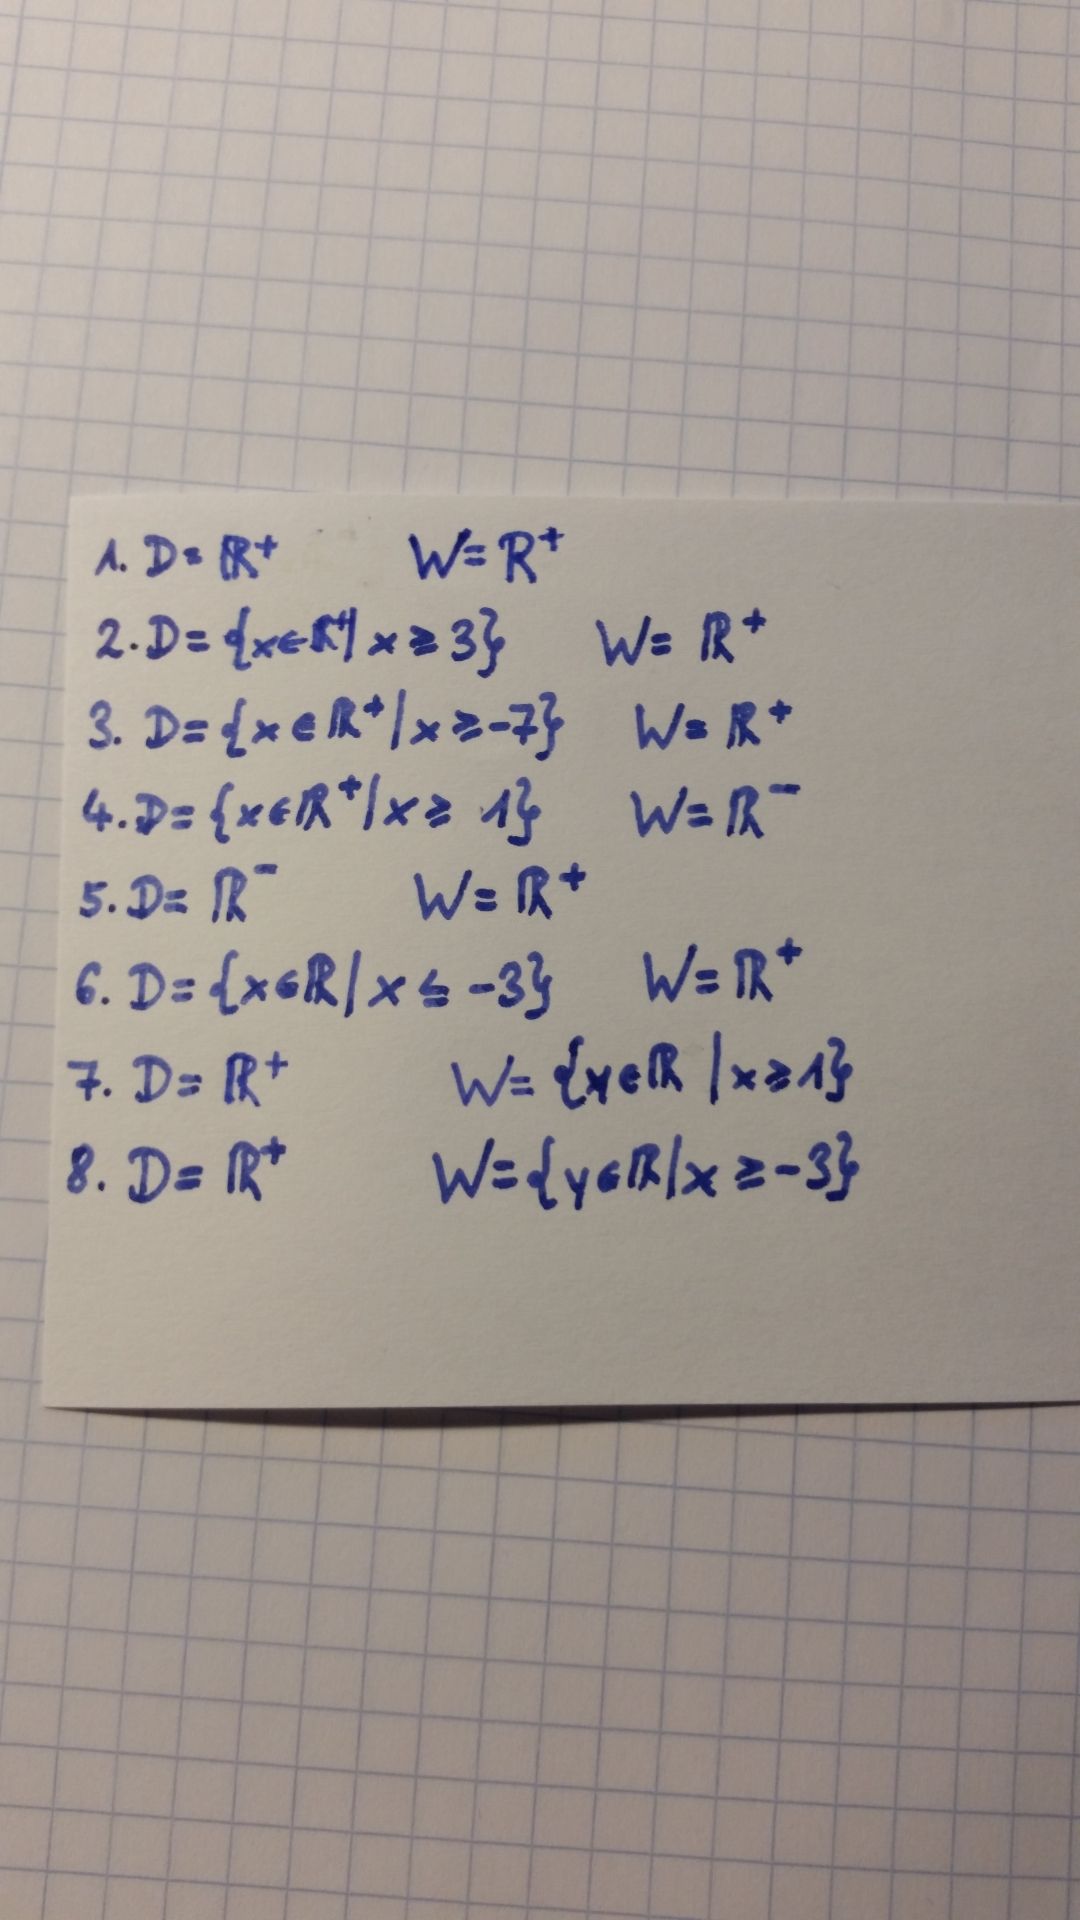 1. D= ℝ⁺ W= ℝ⁺
2. D= {x∈ℝ⁺| x ≥ 3} W= ℝ⁺
3. D= {x ∈ ℝ⁺ | x ≥ -7} W= ℝ⁺
4. D= {x∈ℝ⁺ | x ≥ 1} W= ℝ⁻
5. D= ℝ⁻ W= ℝ⁺
6. D= {x∈ℝ | x ≤ -3} W= ℝ⁺
7. D= ℝ⁺ W= {y∈ℝ | x ≥ 1}
8. D= ℝ⁺ W= {y∈ℝ | x ≥ -3}